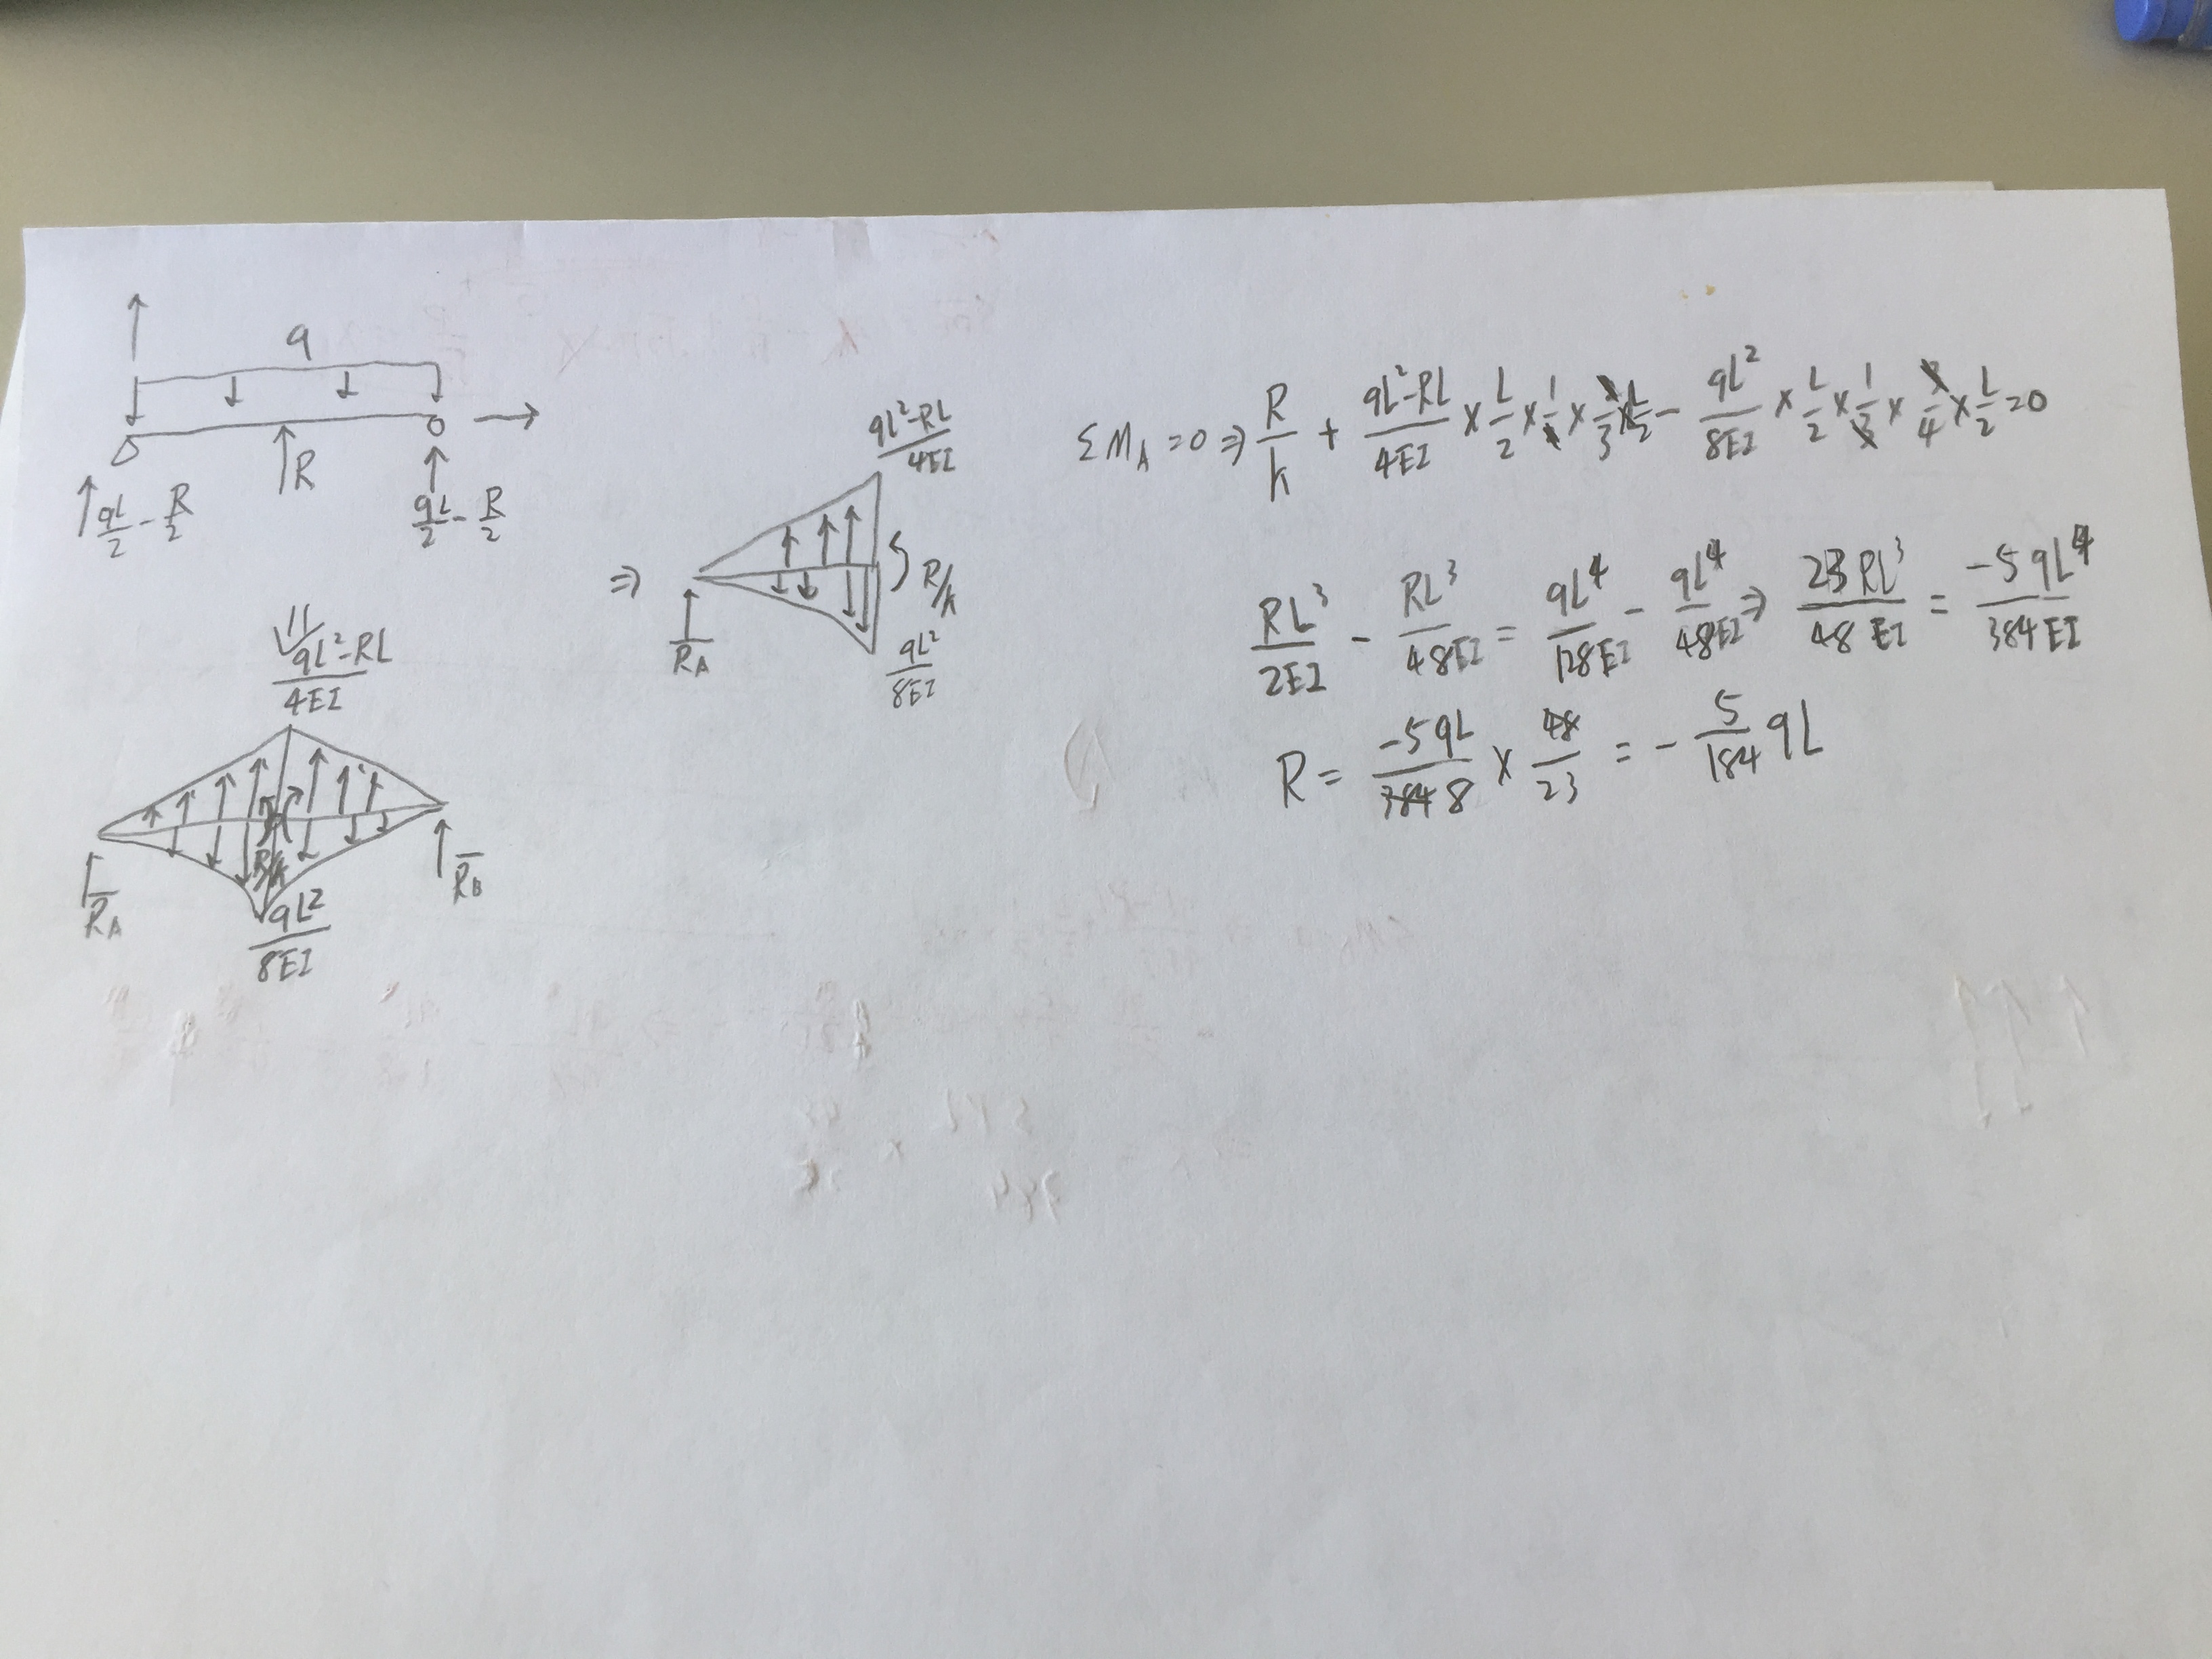 q
R
qL/2 - R/2
qL/2 - R/2
(qL²-RL)/4EI
R_A
R_B
R/k
qL²/8EI
⇒
(qL²-RL)/4EI
R/k
R_A
qL²/8EI
ΣM_A = 0 ⇒ R/k + (qL²-RL)/4EI × L/2 × 1/2 × 2/3 × L/2 - qL²/8EI × L/2 × 1/3 × 3/4 × L/2 = 0
RL³/2EI - RL³/48EI = qL⁴/128EI - qL⁴/48EI ⇒ 23RL³/48EI = -5qL⁴/384EI
R = -5qL/384 8 × 48/23 = - 5/184 qL